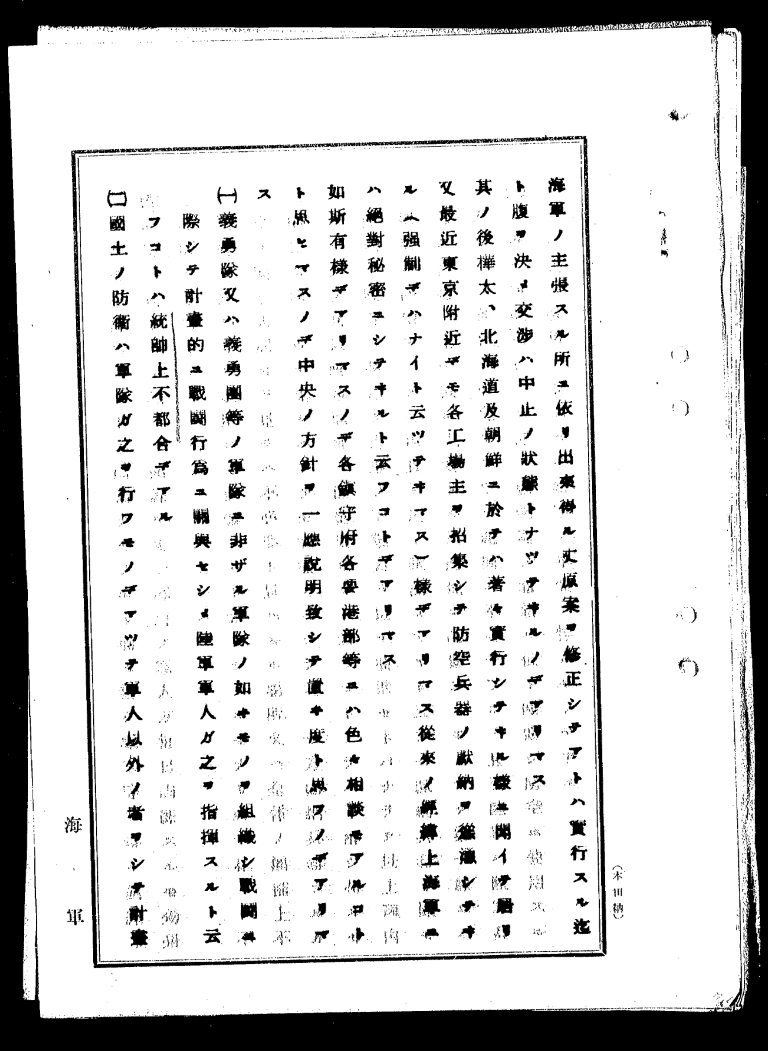 海軍ノ主張スル所ニ依リ出來得ル丈原案ヲ修正シテアトハ實行スル迄
ト腹ヲ決メ交渉ハ中止ノ狀態トナツテヰルノデアリマス
其ノ後樺太、北海道及朝鮮ニ於テハ著々實行シテヰル樣ニ聞イテ居リ
又最近東京附近デモ各工場主ヲ招集シテ防空兵器ノ獻納ヲ慫慂シテヰ
ル(强制デハナイト云ツテヰマス)樣デアリマス從來ノ經緯上海軍ニ
ハ絕對秘密ニシテヰルト云フコトデアリマス
如斯有樣デアリマスノデ各鎭守府各要港部等ニハ色々相談モアルコト
ト思ヒマスノデ中央ノ方針ヲ一應說明致シテ置キ度ト思フノデアリマ
ス
㈠義勇隊又ハ義勇團等ノ軍隊ニ非ザル軍隊ノ如キモノヲ組織シ戰鬪ニ
際シテ計畫的ニ戰鬪行爲ニ關與セシメ陸軍軍人ガ之ヲ指揮スルト云
フコトハ統帥上不都合デアル
㈡國土ノ防衞ハ軍隊ガ之ヲ行フモノデアツテ軍人以外ノ者ヲシテ計畫
海軍